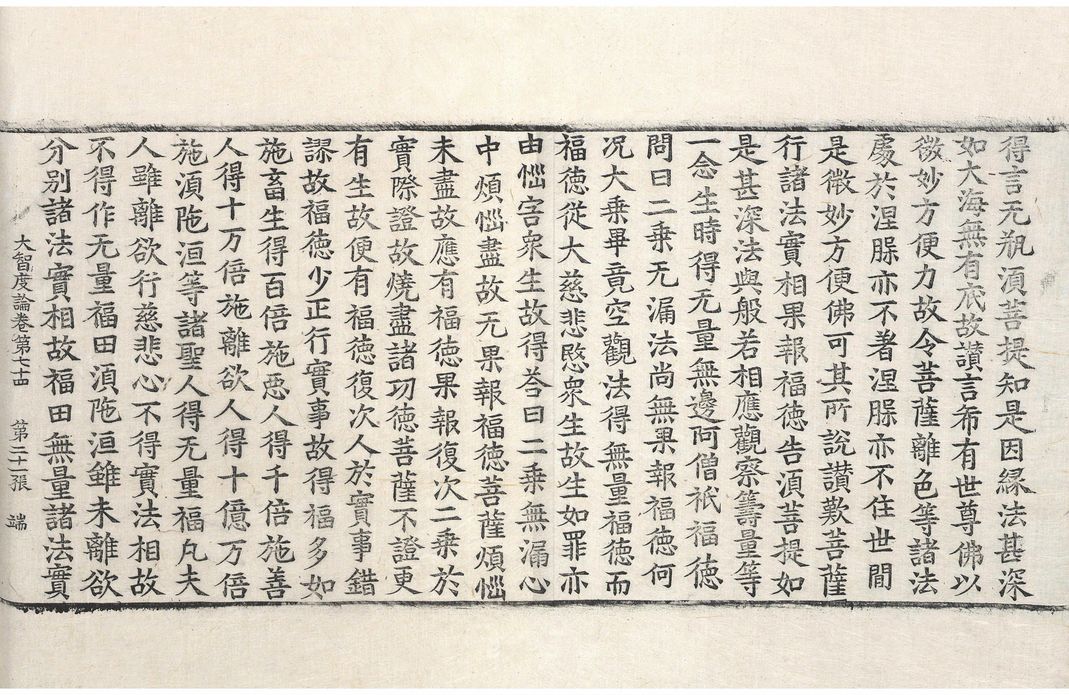 得言无瓶湏菩提知是因縁法甚深
如大海無有底故讃言希有世尊佛以
微妙方便力故令菩薩離色等諸法
處於涅縏亦不著涅縏亦不住世間
是微妙方便佛可其所說讃歎菩薩
行諸法實相果報福徳告湏菩提如
是甚深法與般若相應觀察籌量等
一念生時得无量無邊阿僧祇福徳
問曰二乗无漏法尚無果報福徳何
况大乗畢竟空觀法得無量福徳而
福徳從大慈悲愍衆生故生如罪亦
由惱害衆生故得荅曰二乗無漏心
中煩惱盡故无果報福徳菩薩煩惱
未盡故應有福徳果報復次二乗於
實際證故燒盡諸功徳菩薩不證更
有生故便有福徳復次人於實事錯
謬故福徳少正行實事故得福多如
施畜生得百倍施惡人得千倍施善
人得十万倍施離欲人得十億万倍
施湏陁洹等諸聖人得无量福凡夫
人雖離欲行慈悲心不得實法相故
不得作无量福田湏陁洹雖未離欲
分別諸法實相故福田無量諸法實
大智度論卷第七十四 第二十一張 端